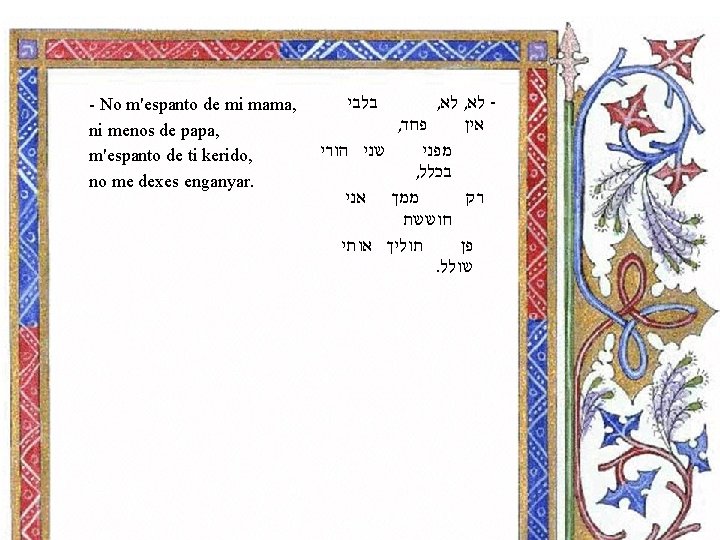 - No m'espanto de mi mama,
ni menos de papa,
m'espanto de ti kerido,
no me dexes enganyar.
- לא, לא, בלבי
אין פחד,
מפני שני הורי
בכלל,
רק ממך אני
חוששת
פן תוליך אותי
שולל.